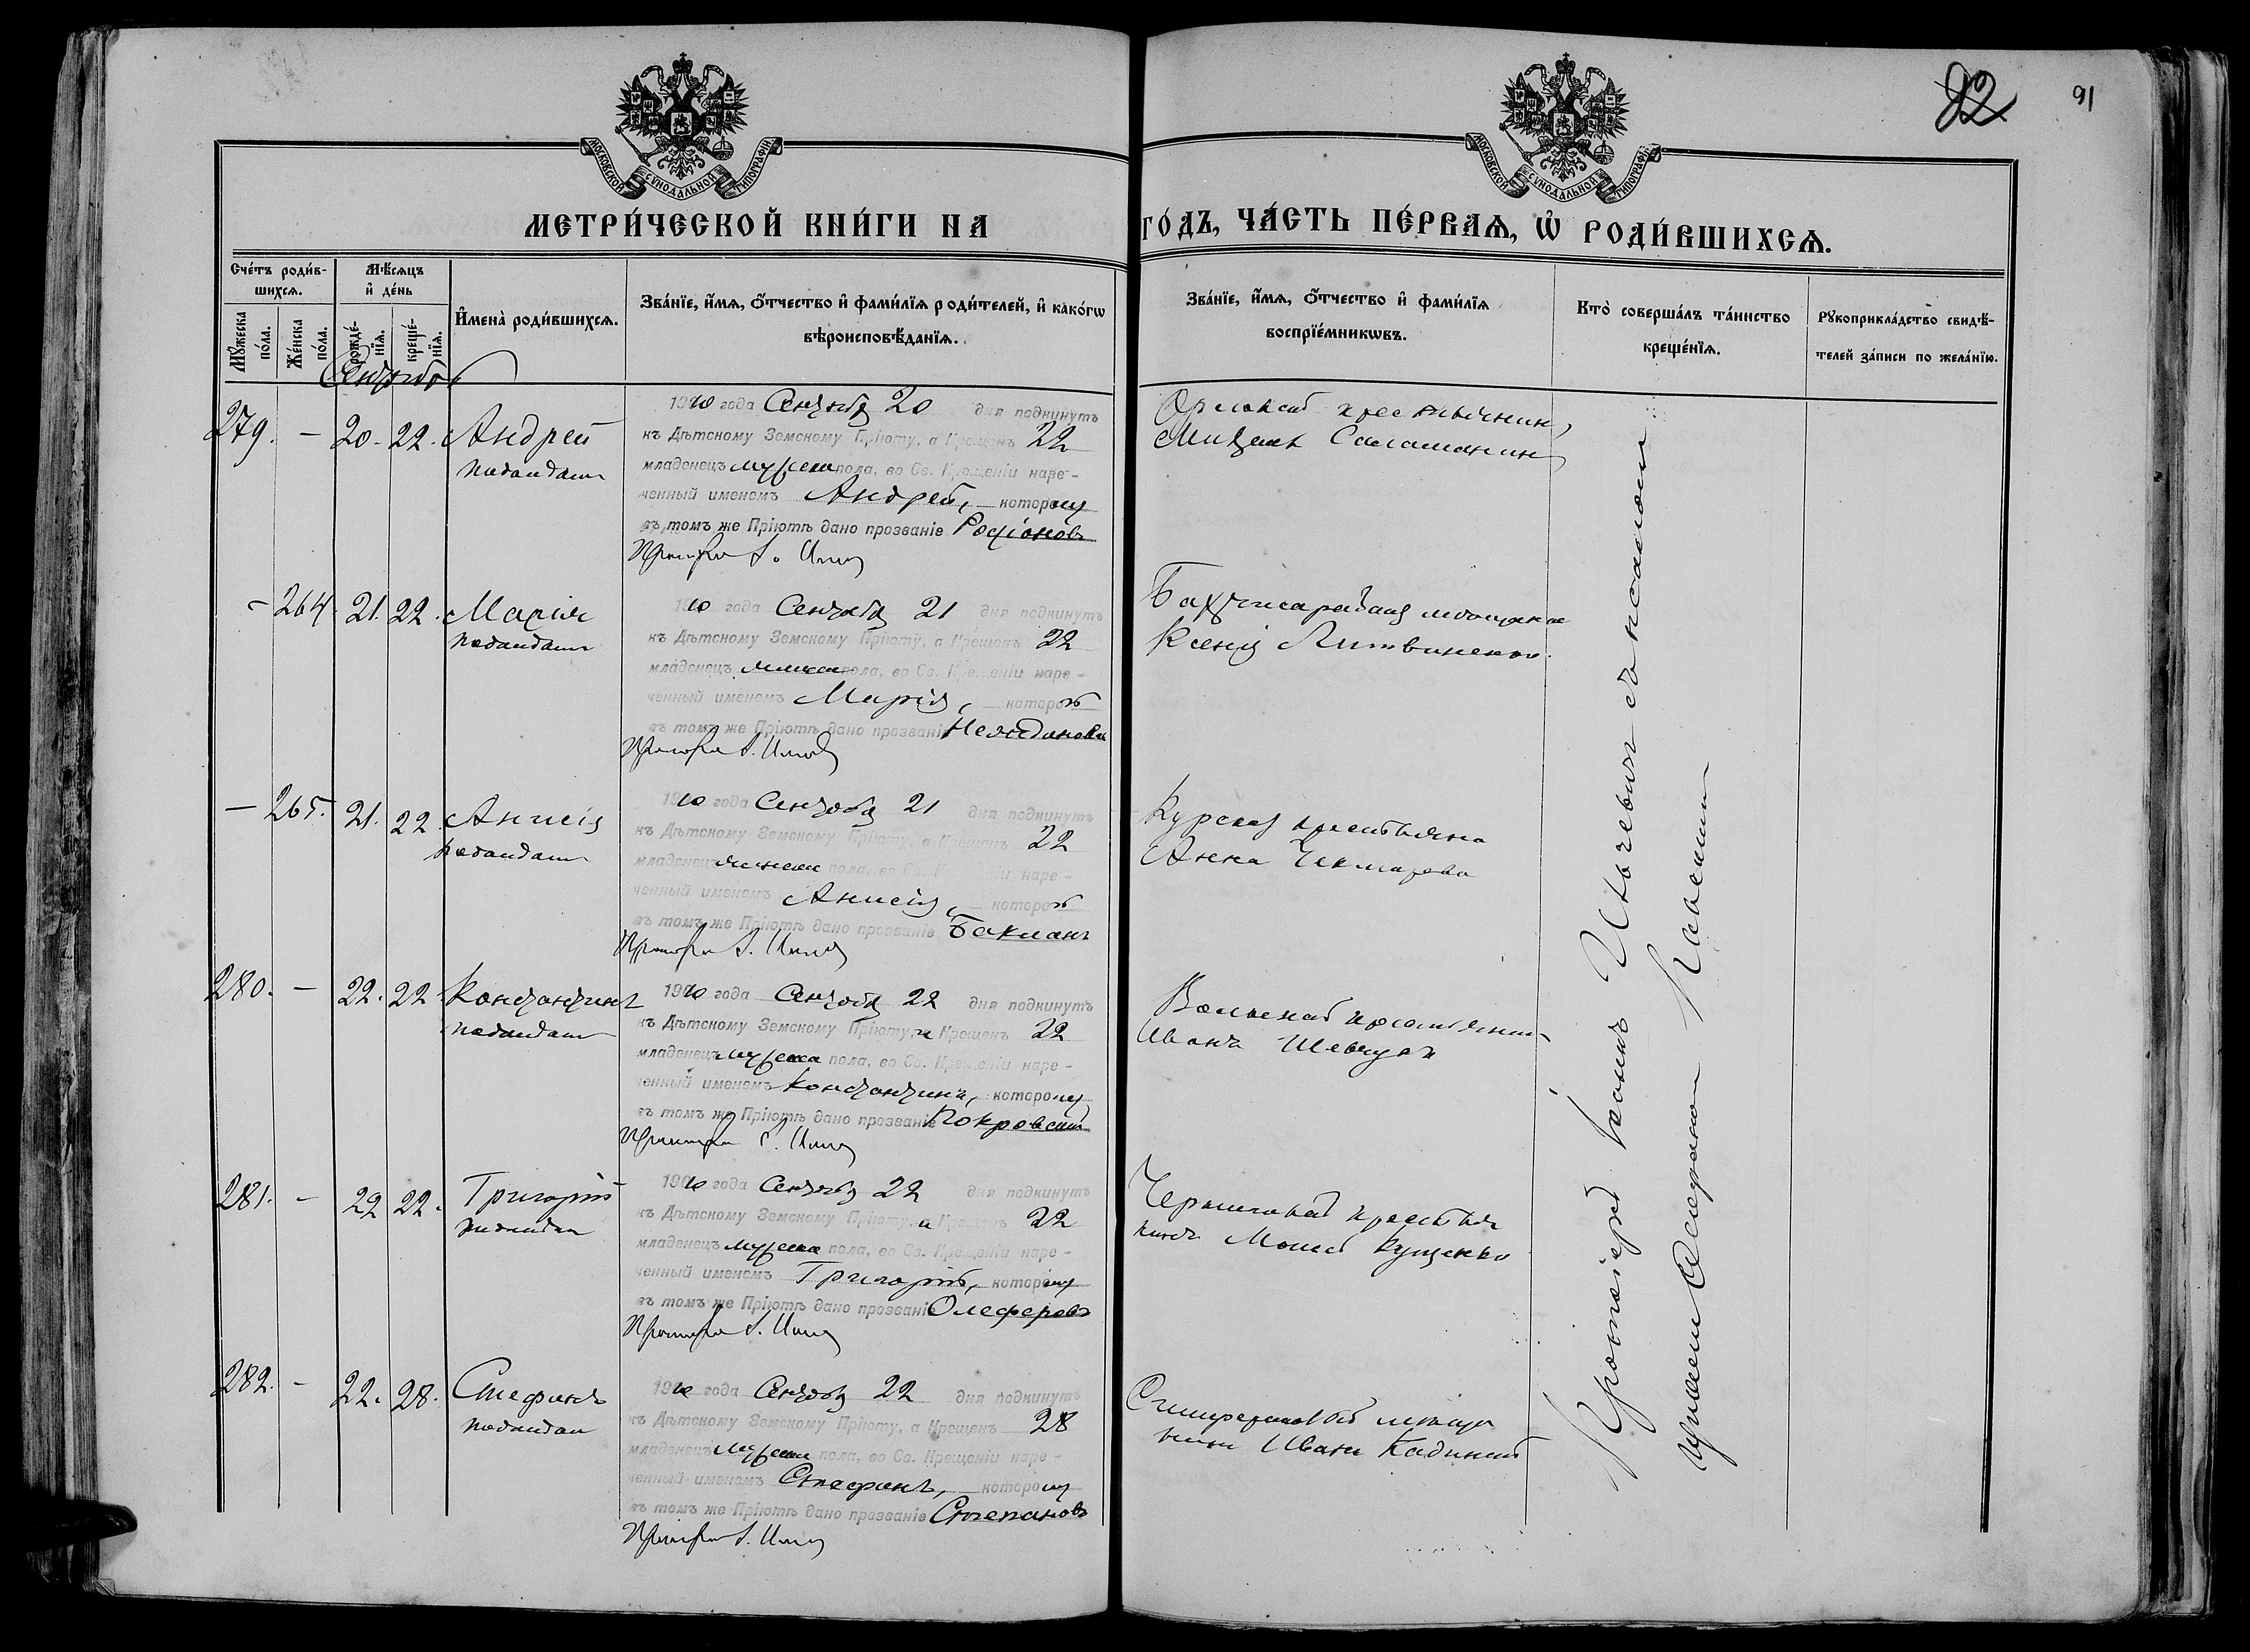 82 91
МОСКОВСКОЙ СѴНОДАЛЬНОЙ ТИПОГРАФІИ
МОСКОВСКОЙ СѴНОДАЛЬНОЙ ТИПОГРАФІИ
МЕТРИ́ЧЕСКОЙ КНИ́ГИ НА ГО́ДЪ, ЧА́СТЬ ПЕ́РВАѦ, Ѡ҆ РОДИ́ВШИХСѦ.
Сче́тъ роди́в-
шихсѧ.
Мꙋ́жеска по́ла.
Же́нска по́ла.
Мѣ́сѧцъ
и҆ де́нь
рожде́-
нїѧ.
креще́-
нїѧ.
И҆мена̀ роди́вшихсѧ.
Зва́нїе, и҆́мѧ, ѻ҆́тчество и҆ фами́лїѧ роди́телей, и҆ како́гѡ
вѣроисповѣ́данїѧ.
Зва́нїе, и҆́мѧ, ѻ҆́тчество и҆ фами́лїѧ
воспрїе́мникѡвъ.
Кто̀ соверша́лъ та́инство
креще́нїѧ.
Рꙋкоприкла́дство свидѣ́-
телей за́писи по жела́нїю.
Сентябрь
279. — 20. 22. Андрей
подкидыш
1910 года Сентября 20 дня подкинутъ
къ Дѣтскому Земскому Пріюту, а Крещенъ 22
младенецъ мужска пола, во Св. Крещеніи наре-
ченный именемъ Андрей, которому
въ томъ же Пріютѣ дано прозваніе Родіоновъ
Орловскій крестьянин
Михаил Саламанин
— 264. 21. 22. Марія
подкидыш
1910 года Сентября 21 дня подкинутъ
къ Дѣтскому Земскому Пріюту, а Крещенъ 22
младенецъ женска пола, во Св. Крещеніи наре-
ченный именемъ Марія, которой
въ томъ же Пріютѣ дано прозваніе
Бахчисарайская мещанка
Ксенія Литвиненко.
— 265. 21. 22. Анисія
подкидыш
1910 года Сентября 21 дня подкинутъ
къ Дѣтскому Земскому Пріюту, а Крещенъ 22
младенецъ женска пола, во Св. Крещеніи наре-
ченный именемъ Анисія, которой
въ томъ же Пріютѣ дано прозваніе Бакланъ
Курская крестьянка
Анна Чекмарева
280. — 22. 22. Константинъ
подкидыш
1910 года Сентября 22 дня подкинутъ
къ Дѣтскому Земскому Пріюту, а Крещенъ 22
младенецъ мужска пола, во Св. Крещеніи наре-
ченный именемъ Константинъ, которому
въ томъ же Пріютѣ дано прозваніе Покровскій
крестьянин
Иванъ Шевчукъ
281. — 22 22. Григорій
подкидыш
1910 года Сентября 22 дня подкинутъ
къ Дѣтскому Земскому Пріюту, а Крещенъ 22
младенецъ мужска пола, во Св. Крещеніи наре-
ченный именемъ Григорій, которому
въ томъ же Пріютѣ дано прозваніе Олеферовъ
Черниговскій крестья
нинъ Моисей Кущенко
282. — 22. 28. Стефанъ
подкидыш
1910 года Сентября 22 дня подкинутъ
къ Дѣтскому Земскому Пріюту, а Крещенъ 28
младенецъ мужска пола, во Св. Крещеніи наре-
ченный именемъ Стефанъ, которому
въ томъ же Пріютѣ дано прозваніе Степановъ
Симферопольскій меща
нин Иванъ Кадинскій
Протоіерей Іоаннъ Ильчевичъ съ псаломщ